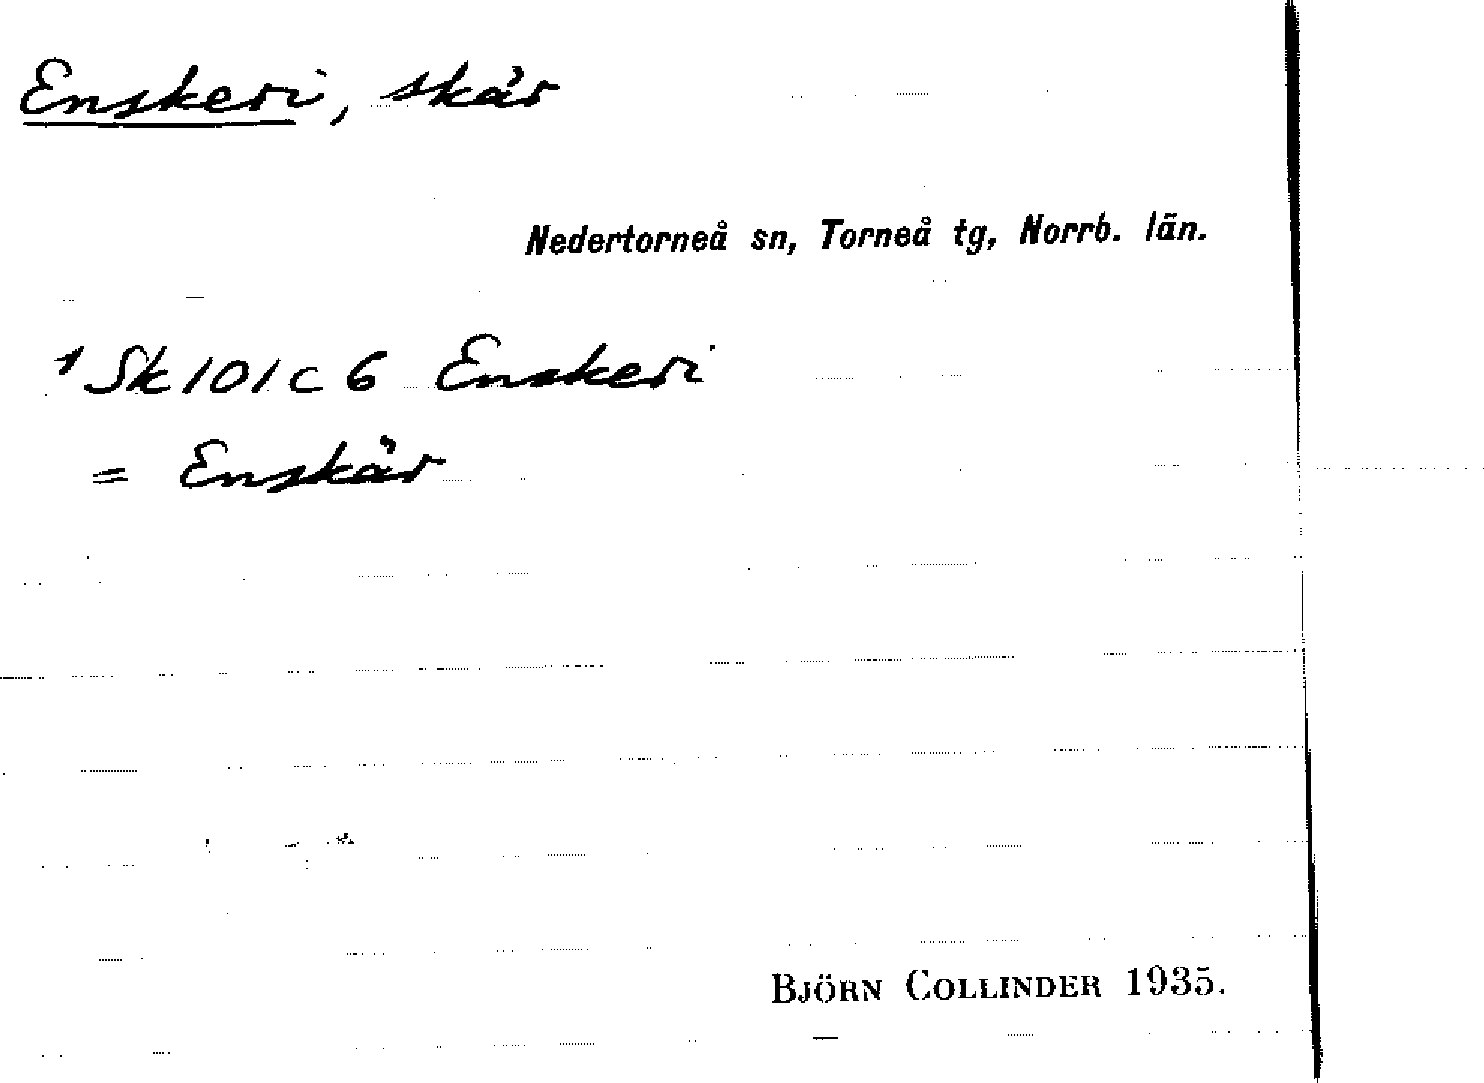 Enskeri, skär
Nedertorneå sn, Torneå tg, Norrb. län.
1 Sk 101 c 6 Enskeri
= Enskär
BJÖRN COLLINDER 1935.